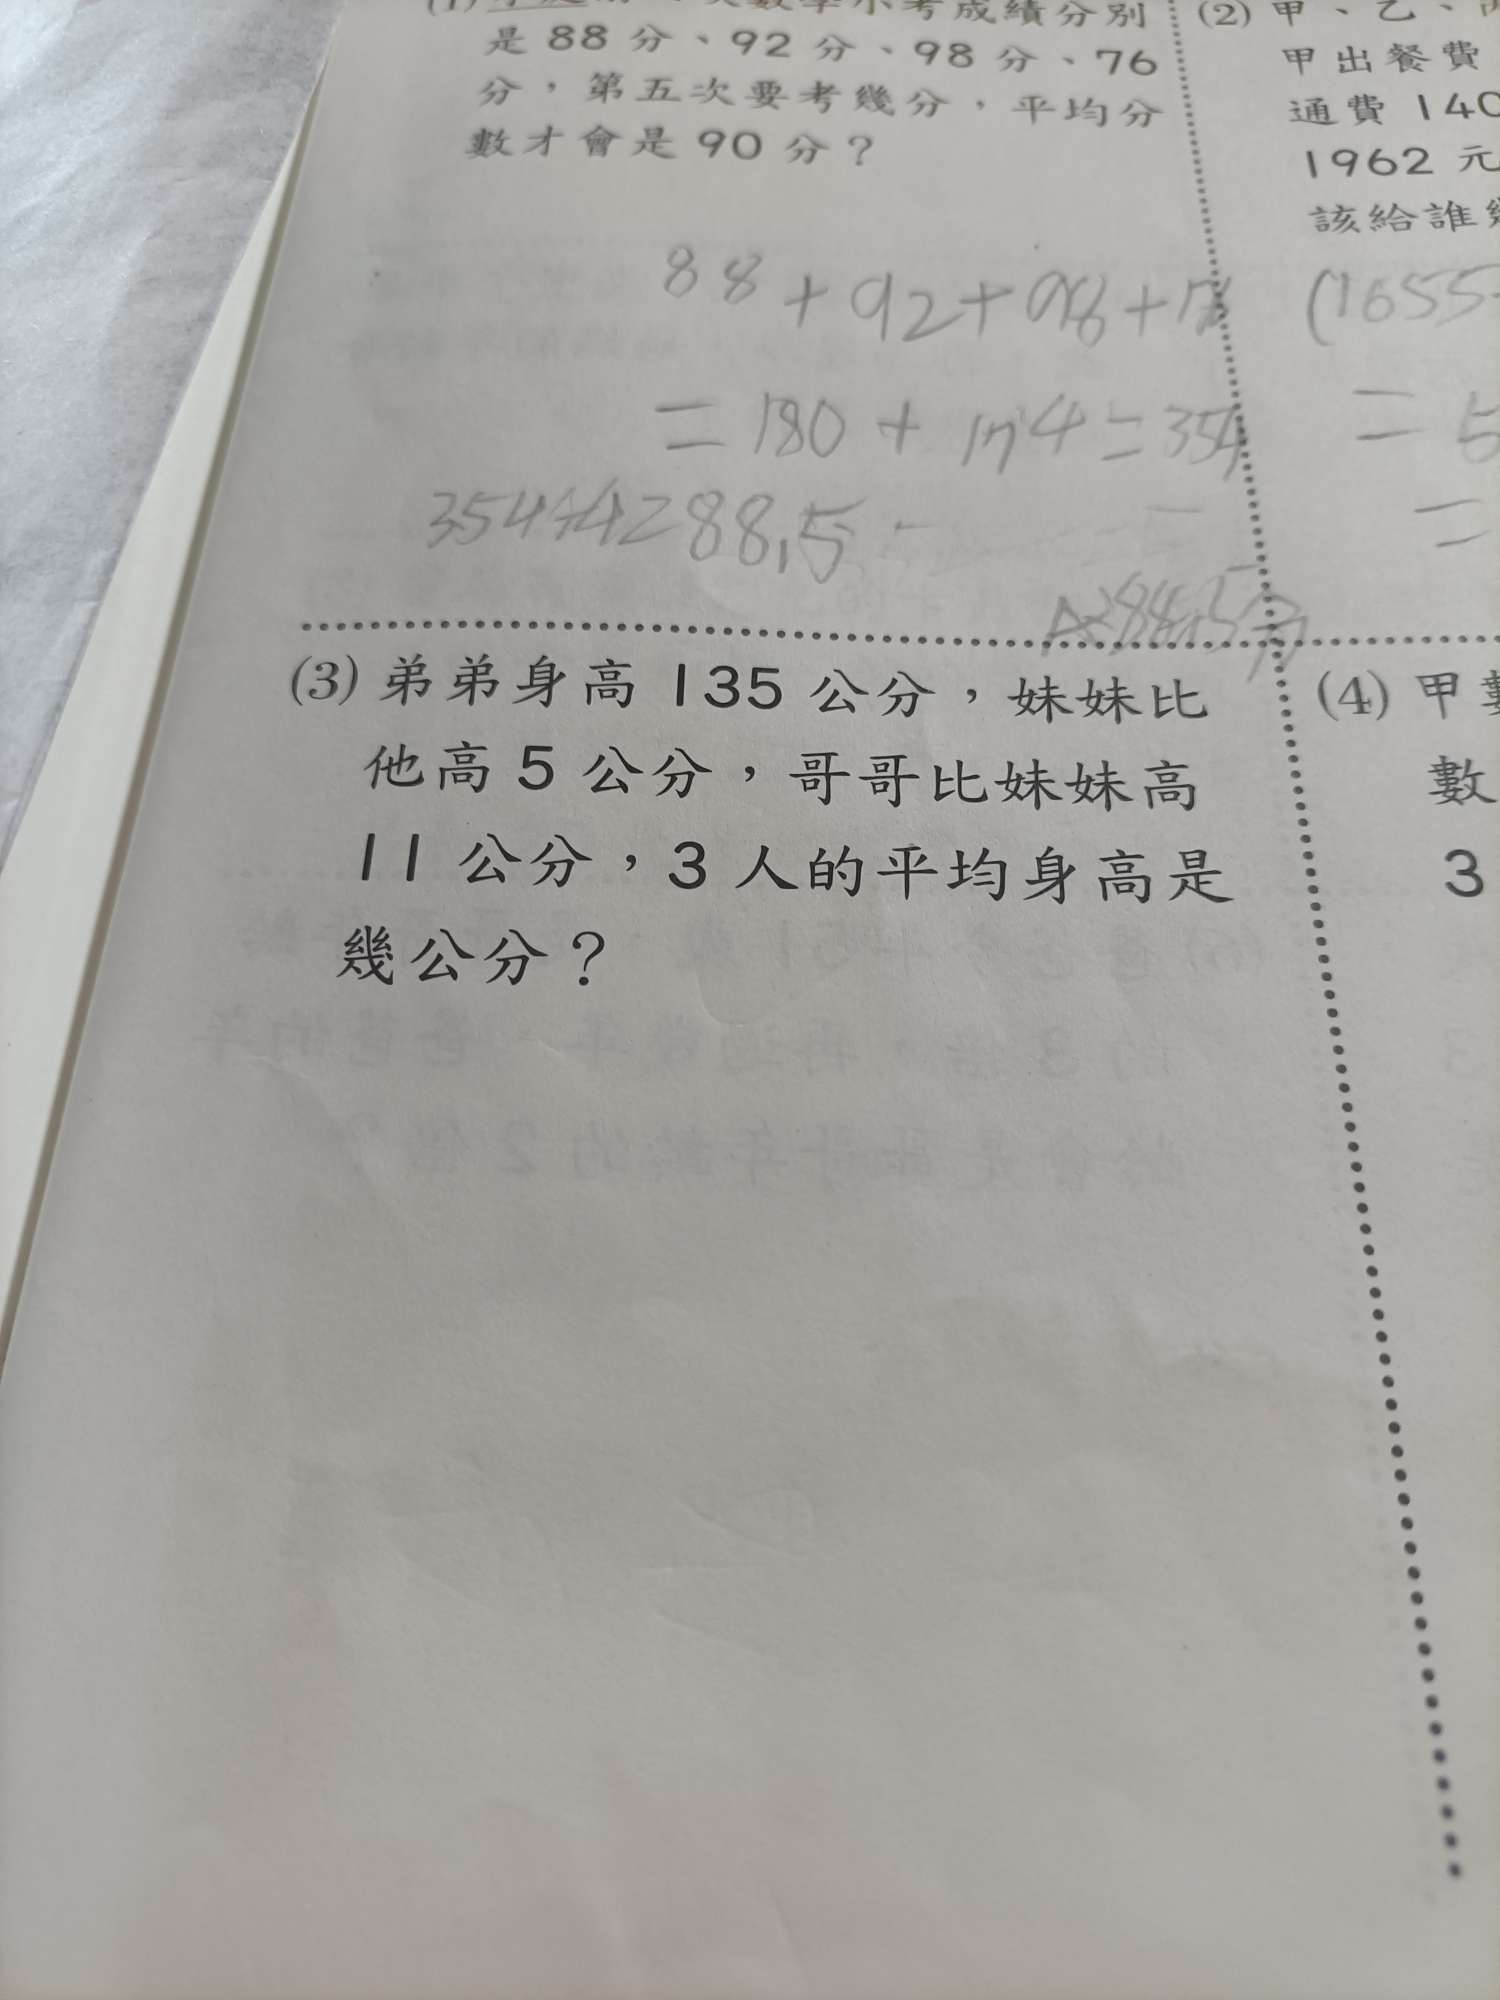 數學小考成績分別
是 88 分、92 分、98 分、76
分，第五次要考幾分，平均分
數才會是 90 分？
88+92+98+7
=180+174=354
354÷4=88.5
(2) 甲、乙、
甲出餐費
通費 140
1962 元
該給誰
(1655
= 5
=
(3) 弟弟身高 135 公分，妹妹比
他高 5 公分，哥哥比妹妹高
11 公分，3 人的平均身高是
幾公分？
(4) 甲數
數
3